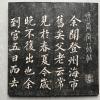 余聞登州海市
舊矣父老云常
見於春夏今歲
晚不復出也余
到官五日而去